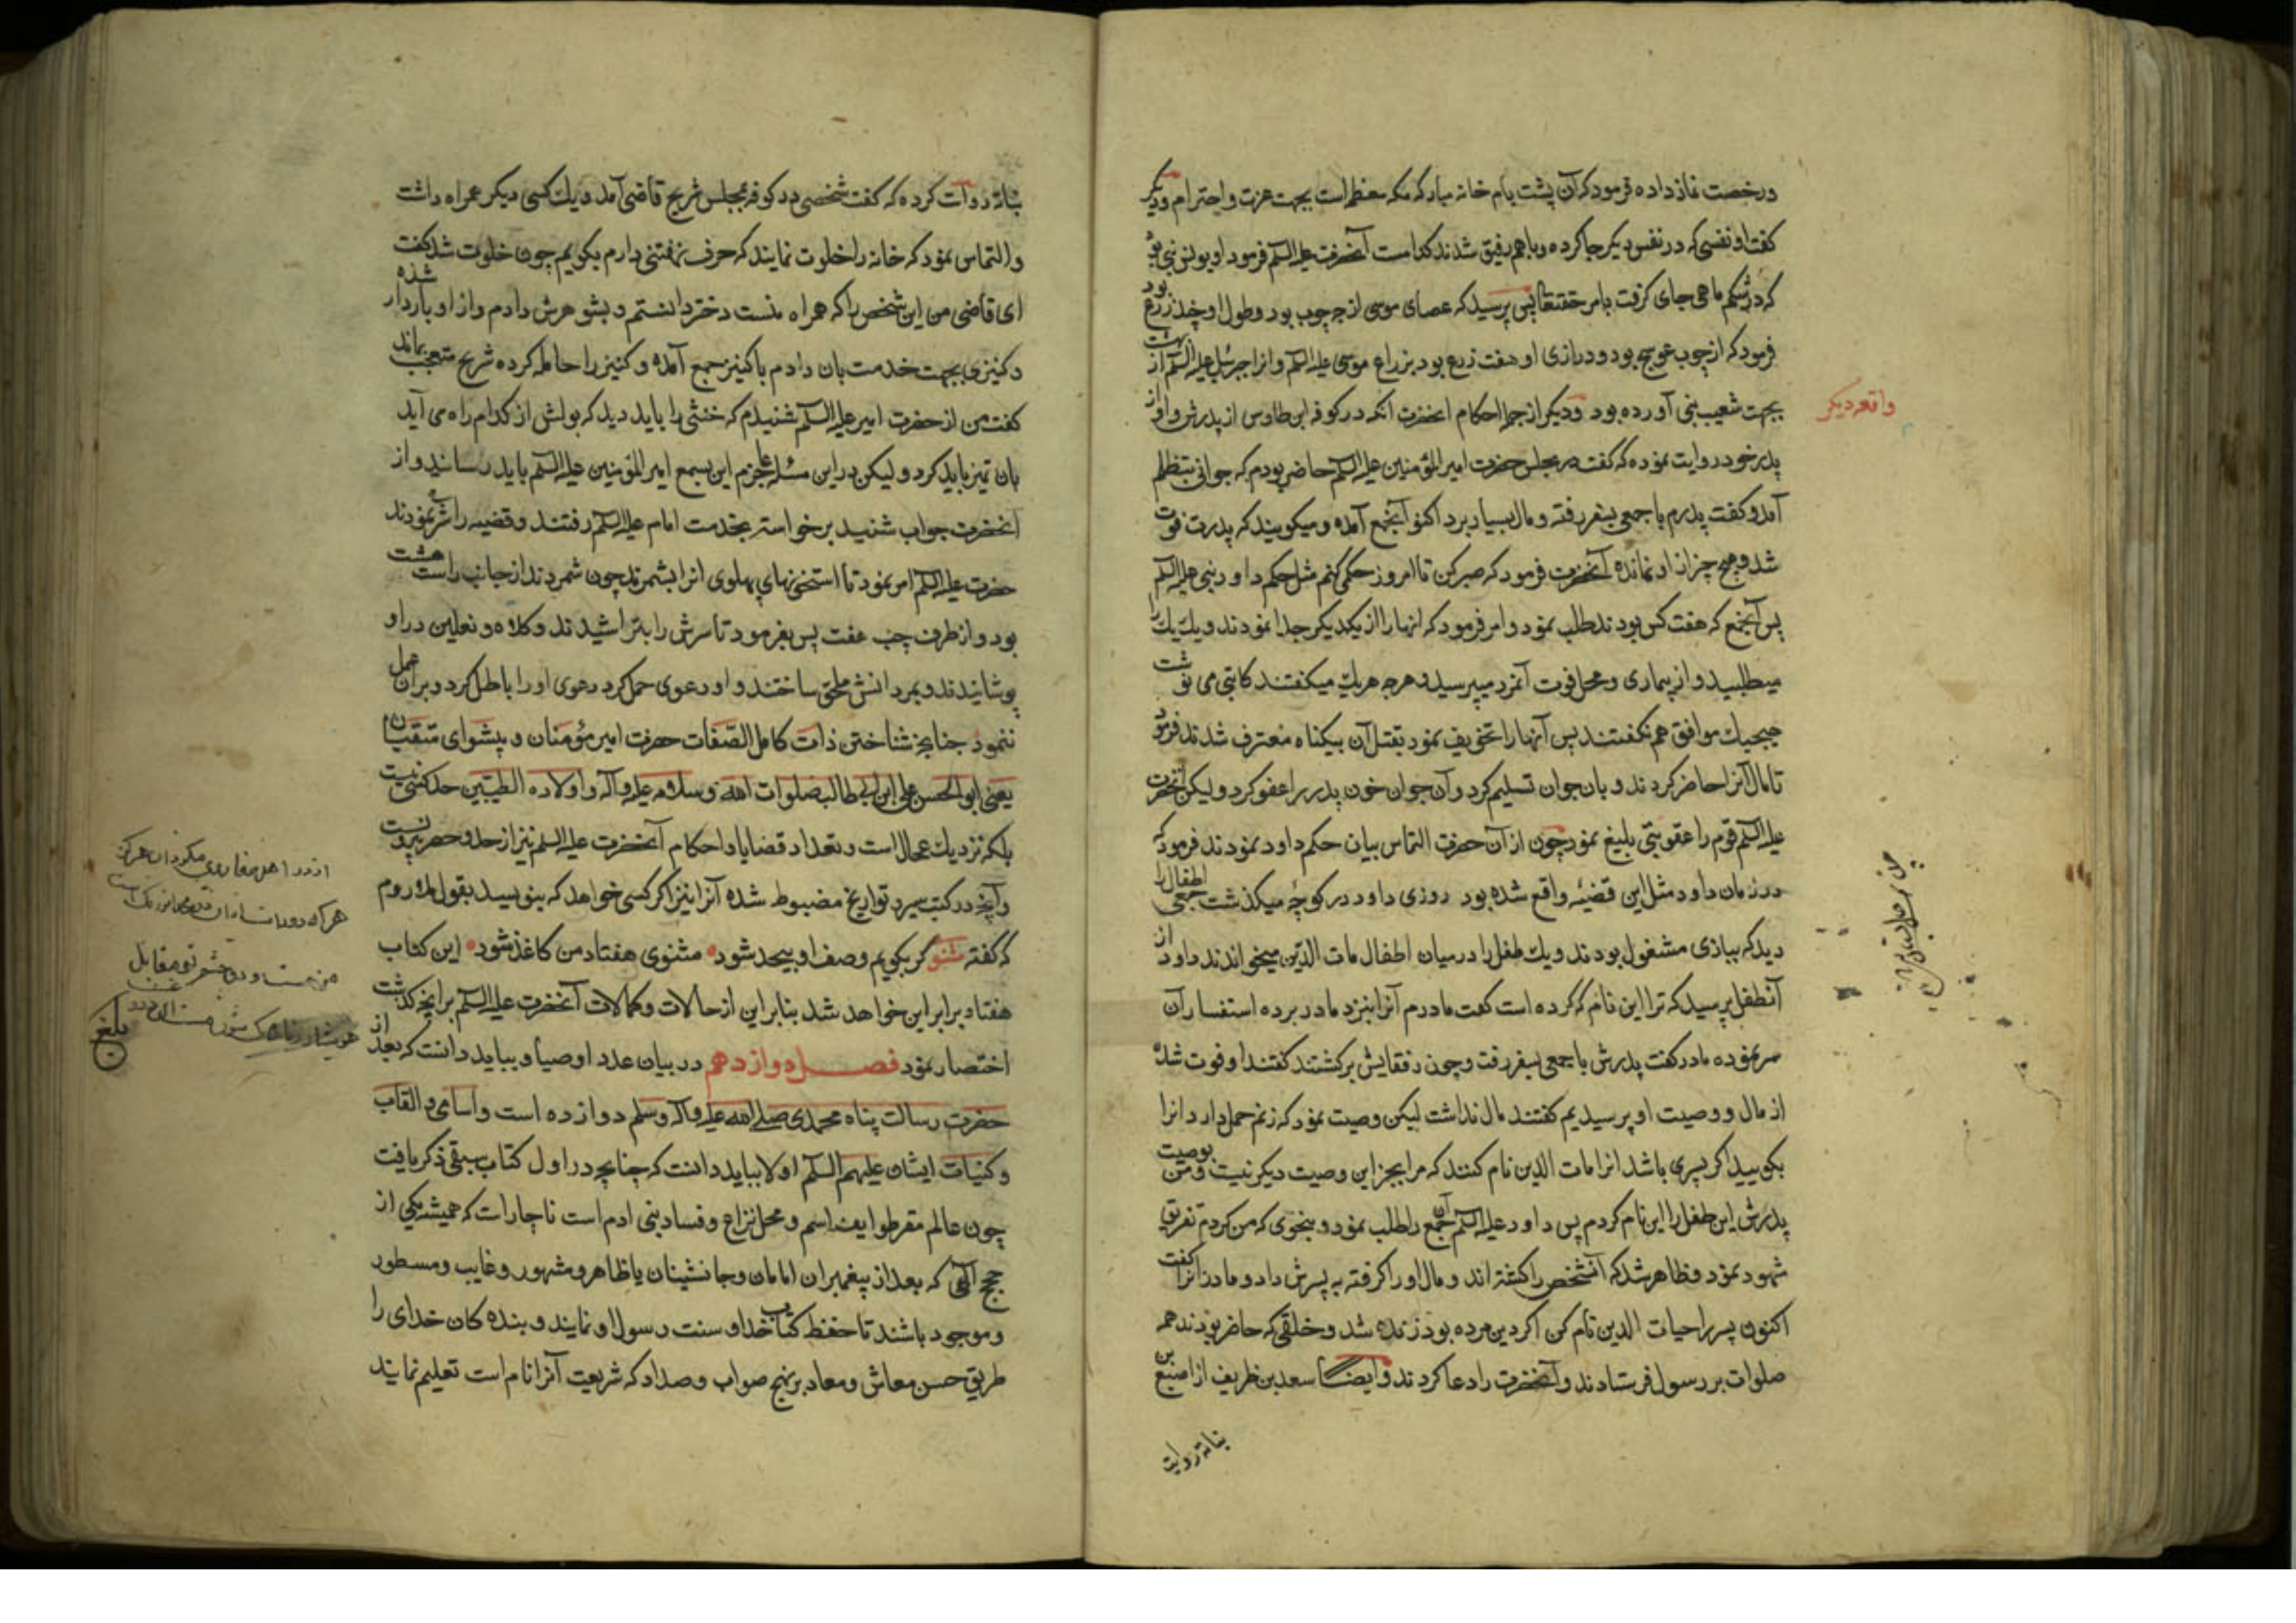 درخصت نماز داده فرمود که آن پشت بام خانه مبارکه مکه معظم است بجهت عزت و احترام و دیگر
گفت او نفسی که در نفس دیگر جا کرده و با هم رفیق شدند کدامست آنحضرت علیه السلم فرمود او یونس نبی بود
که در شکم ماهی جای گرفت بامر حقتعالی پس پرسید که عصای موسی از چه چوب بود و طول او چند زرع بود
فرمود که از چوب عوسج بود و درازی او هفت زرع بود بزراع موسی علیه السلم و انرا جبرئیل علیه السلم از بهشت
بجهت شعیب نبی آورده بود و دیگر از جمله احکام انحضرت انکه در کوفه ابن طاوس از پدرش و او از
واقعه دیگر
پدر خود روایت نموده که گفت در مجلس حضرت امیر المؤمنین علیه السلم حاضر بودم که جوانی بتظلم
آمد و گفت پدرم با جمعی بسفر رفته و مال بسیار برد اکنون آنجمع آمده و میکویند که پدرت فوت
شد و هیچ چیز از او نمانده آنحضرت فرمود که صبر کن تا امروز حکمی کنم مثل حکم داود نبی علیه السلم
پس آنجمع که هفت کس بودند طلب نمود و امر فرمود که انها را از یکدیگر جدا نمودند و یك یك را
میطلبید و از بیماری و محل فوت آنمرد میپرسید و هر چه هر یك میکفتند کاتبی می نوشت
هیچیك موافق هم نکفتند پس آنها را تخویف نمود بقتل آن بیکناه معترف شدند فرمود
تا مال آنرا حاضر کردند و بان جوان تسلیم کرد و آن جوان خون پدر را عفو کرد و لیکن آنحضرت
علیه السلم قوم را عقوبتی بلیغ نمود چون از آن حضرت التماس بیان حکم داود نمودند فرمود که
در زمان داود مثل این قضیه واقع شده بود روزی داود در کوچه میکذشت جمعی اطفال را
دید که ببازی مشغول بودند و یك طفل را در میان اطفال مات الدین میخواندند داود از
آنطفل پرسید که ترا این نام که کرده است کفت مادرم آنرا بنزد مادر برده استفسار آن
نموده مادر کفت پدرش با جمعی بسفر رفت و چون رفقایش برکشتند کفتند او فوت شده
از مال و وصیت او پرسیدیم کفتند مال نداشت لیکن وصیت نمود که زنم حمل دارد انرا
بکویید اکر پسری باشد انرا مات الدین نام کنند که مرا بجز این وصیت دیکر نیست و من بوصیت
پدرش این طفل را این نام کردم پس داود علیه السلم آن جمع را طلب نمود و بنحوی که من کردم تفریق
شهود نمود و ظاهر شد که آنشخص را کشته اند و مال او را کرفته به پسرش داد و مادر انرا کفت
اکنون پسر را حیات الدین نام کن اکر دین مرده بود زنده شد و خلقی که حاضر بودند همه
صلوات بر رسول فرستادند و آنحضرت را دعا کردند و ایضا سعد بن ظریف از اصبغ بن
نباته روایت
نباته روات کرده که کفت شخصی در کوفه بمجلس شریح قاضی آمد و یك کسی دیکر همراه داشت
و التماس نمود که خانه را خلوت نمایند که حرف نهفتنی دارم بکویم چون خلوت شد کفت
ای قاضی من این شخص را که همراه منست دختر دانستم و بشوهرش دادم و از او باردار شده
و کنیزی بجهت خدمت بان دادم با کنیز جمع آمده و کنیز را حامله کرده شریح متعجب بماند
کفت من از حضرت امیر علیه السلم شنیدم که خنثی را باید دید که بولش از کدام راه می آید
بان تمیز باید کرد و لیکن در این مسئله عاجزم این بسمع امیر المؤمنین علیه السلم باید رسانید و از
آنحضرت جواب شنید برخواسته بخدمت امام علیه السلم رفتند و قضیه را شرح نمودند
حضرت علیه السلم امر نمود تا استخنهای پهلوی انرا بشمرند چون شمردند از جانب راست هشت
بود و از طرف چپ هفت پس بفرمود تا سرش را بتراشیدند و کلاه و نعلین در او
پوشانیدند و بمردانش ملحق ساختند و او دعوی حمل کرد دعوی او را باطل کرد و بر آن عمل
ننمود چنانچه شناختن ذات کامل الصفات حضرت امیر مؤمنان و پیشوای متقیان
یعنی ابو الحسن علی ابن ابی طالب صلوات الله وسلامه علیه وآله واولاده الطیبین حد کسی نیست
بلکه نزدیك بمحال است و تعداد قضایا و احکام آنحضرت علیه السلم نیز از حد و حصر بیرونست
و آنچه در کتب سیر و تواریخ مضبوط شده آنرا نیز اکر کسی خواهد که بنویسد بقول ملاء روم
که کفته مثنوی کر بکویم وصف او بیحد شود مثنوی هفتاد من کاغذ شود این کتاب
هفتاد برابر این خواهد شد بنابر این از حالات و کمالات آنحضرت علیه السلم بر انچه کذشت
اختصار نمود فصل دوازدهم در بیان عدد اوصیا و بباید دانست که بعد از
حضرت رسالت پناه محمدی صلی الله علیه وآله وسلم دوازده است و اسامی و القاب
و کنیات ایشان علیهم السلم اولا بباید دانست که چنانچه در اول کتاب سبقی ذکر یافت
چون عالم مقر طوایف امم و محل نزاع و فساد بنی ادم است ناچار است که همیشه یکی از
حجج الهی که بعد از پیغمبران امامان و جانشینان یا ظاهر و مشهور و غایب و مسطور
و موجود باشند تا حفظ کتاب خدا و سنت رسول او نمایند و بنده کان خدای را
طریق حسن معاش و معاد بر نهج صواب و صداد که شریعت آنرا نام است تعلیم نمایند
بلغ